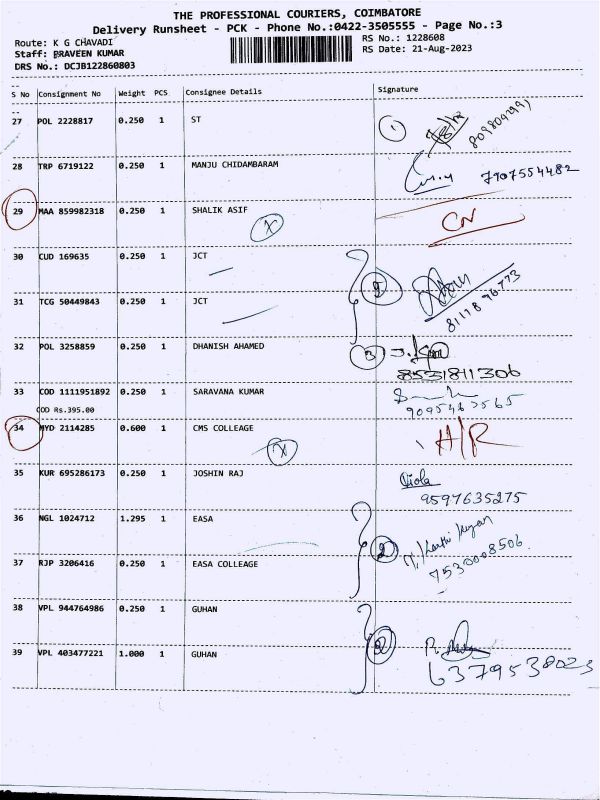 THE PROFESSIONAL COURIERS, COIMBATORE
Delivery Runsheet - PCK - Phone No.:0422-3505555 - Page No.:3
Route: K G CHAVADI RS No.: 1228608
Staff: PRAVEEN KUMAR RS Date: 21-Aug-2023
DRS No.: DCJB122860803
S No Consignment No Weight PCS Consignee Details Signature
27 POL 2228817 0.250 1 ST 1
28 TRP 6719122 0.250 1 MANJU CHIDAMBARAM 7907554482
29 MAA 859982318 0.250 1 SHALIK ASIF X CN
30 CUD 169635 0.250 1 JCT 2
31 TCG 50449843 0.250 1 JCT
32 POL 3258859 0.250 1 DHANISH AHAMED 3
8531811306
33 COD 1111951892 0.250 1 SARAVANA KUMAR
COD Rs.395.00 9095463565
34 MYD 2114285 0.600 1 CMS COLLEAGE X H/R
35 KUR 695286173 0.250 1 JOSHIN RAJ Viola
9597635275
36 NGL 1024712 1.295 1 EASA 2
37 RJP 3206416 0.250 1 EASA COLLEAGE 7530008506
38 VPL 944764986 0.250 1 GUHAN 2
39 VPL 403477221 1.000 1 GUHAN 6379538023